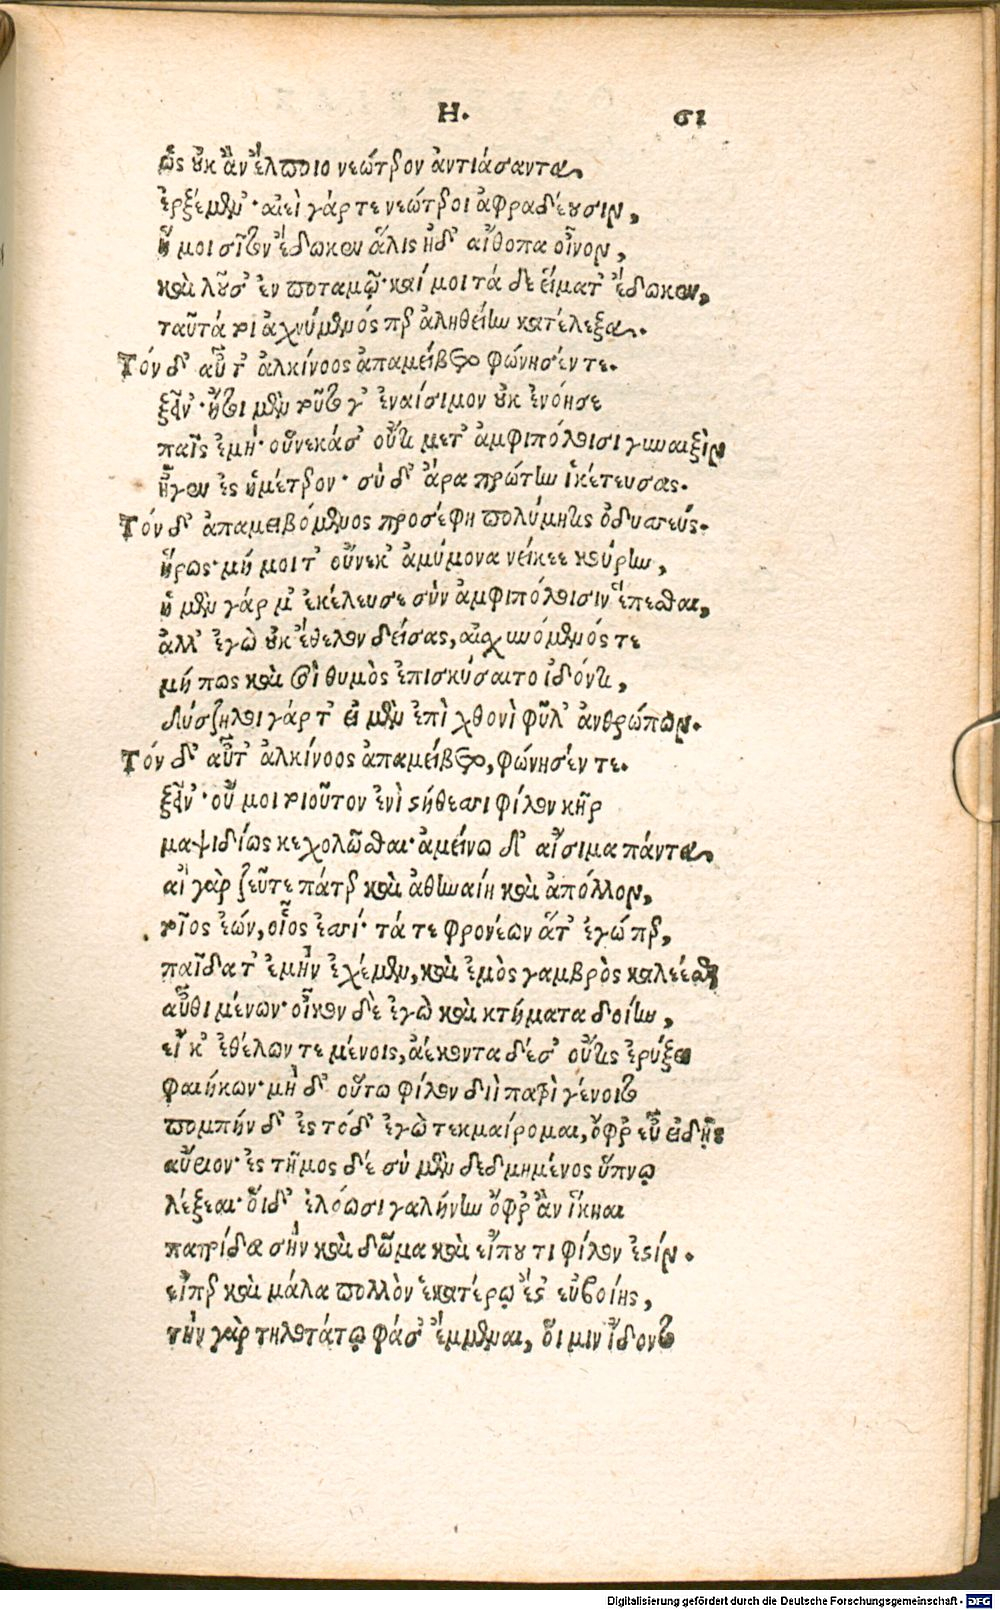 Η. 61
ὣς οὐκ ἂν ἔλποιο νεώτερον ἀντιάσαντα
ἐρξέμεν· αἰεὶ γάρ τε νεώτεροι ἀφραδέουσιν,
ἥ μοι σῖτον ἔδωκεν ἅλις ἠδ' αἴθοπα οἶνον,
καὶ λοῦσ' ἐν ποταμῷ· καί μοι τά δε εἵματ' ἔδωκεν,
ταῦτά τοι ἀχνύμενός περ ἀληθείην κατέλεξα.
Τόν δ' αὖτ' ἀλκίνοος ἀπαμείβετο φώνησέν τε.
ξεῖν'· ἤτοι μὲν τοῦτο γ' ἐναίσιμον οὐκ ἐνόησε
παῖς ἐμή· οὕνεκά σ' οὔτι μετ' ἀμφιπόλοισι γυναιξὶν
ἦγεν ἐς ἡμέτερον· σὺ δ' ἄρα πρώτην ἱκέτευσας.
Τόν δ' ἀπαμειβόμενος προσέφη πολύμητις ὀδυσσεύς.
ἥρως· μή μοι τ' οὕνεκ' ἀμύμονα νείκεε κούρην,
ἡ μὲν γάρ μ' ἐκέλευσε σὺν ἀμφιπόλοισιν ἕπεσθαι,
ἀλλ' ἐγὼ οὐκ ἔθελον δείσας, αἰσχυνόμενός τε
μή πως καὶ σοὶ θυμὸς ἐπισκύσαιτο ἰδόντι,
δύσζηλοι γάρ τ' εἰμὲν ἐπὶ χθονὶ φῦλ' ἀνθρώπων.
Τόν δ' αὖτ' ἀλκίνοος ἀπαμείβετο, φώνησέν τε.
ξεῖν'· οὔ μοι τοιοῦτον ἐνὶ στήθεσσι φίλον κῆρ
μαψιδίως κεχολῶσθαι· ἀμείνω δ' αἴσιμα πάντα
αἲ γὰρ ζεῦ τε πάτερ καὶ ἀθηναίη καὶ ἀπόλλον,
τοῖος ἐών, οἷος ἐσσί· τά τε φρονέων ἅτ' ἐγώ περ,
παῖδα τ' ἐμὴν ἐχέμεν, καὶ ἐμὸς γαμβρὸς καλέεσθαι
αὖθι μένων· οἶκον δὲ ἐγὼ καὶ κτήματα δοίην,
εἴ κ' ἐθέλων τε μένοις, ἀέκοντα δέ σ' οὔτις ἐρύξει
φαιήκων· μὴ δ' οὕτω φίλον διὶ πατρὶ γένοιτο
πομπήν δ' ἐς τόδ' ἐγὼ τεκμαίρομαι, ὄφρ' εὖ εἰδῇς
αὔριον· ἐς τῆμος δέ σὺ μὲν δεδμημένος ὕπνῳ
λέξεαι· οἵδ' ἐλόωσι γαλήνην ὄφρ' ἂν ἵκηαι
πατρίδα σὴν καὶ δῶμα καὶ εἴπου τι φίλον ἐστίν.
εἴπερ καὶ μάλα πολλὸν ἑκατέρῳ ἔστ' εὐβοίης,
τὴν γὰρ τηλοτάτω φάσ' ἔμμεναι, οἵ μιν ἴδοντο
Digitalisierung gefördert durch die Deutsche Forschungsgemeinschaft - DFG